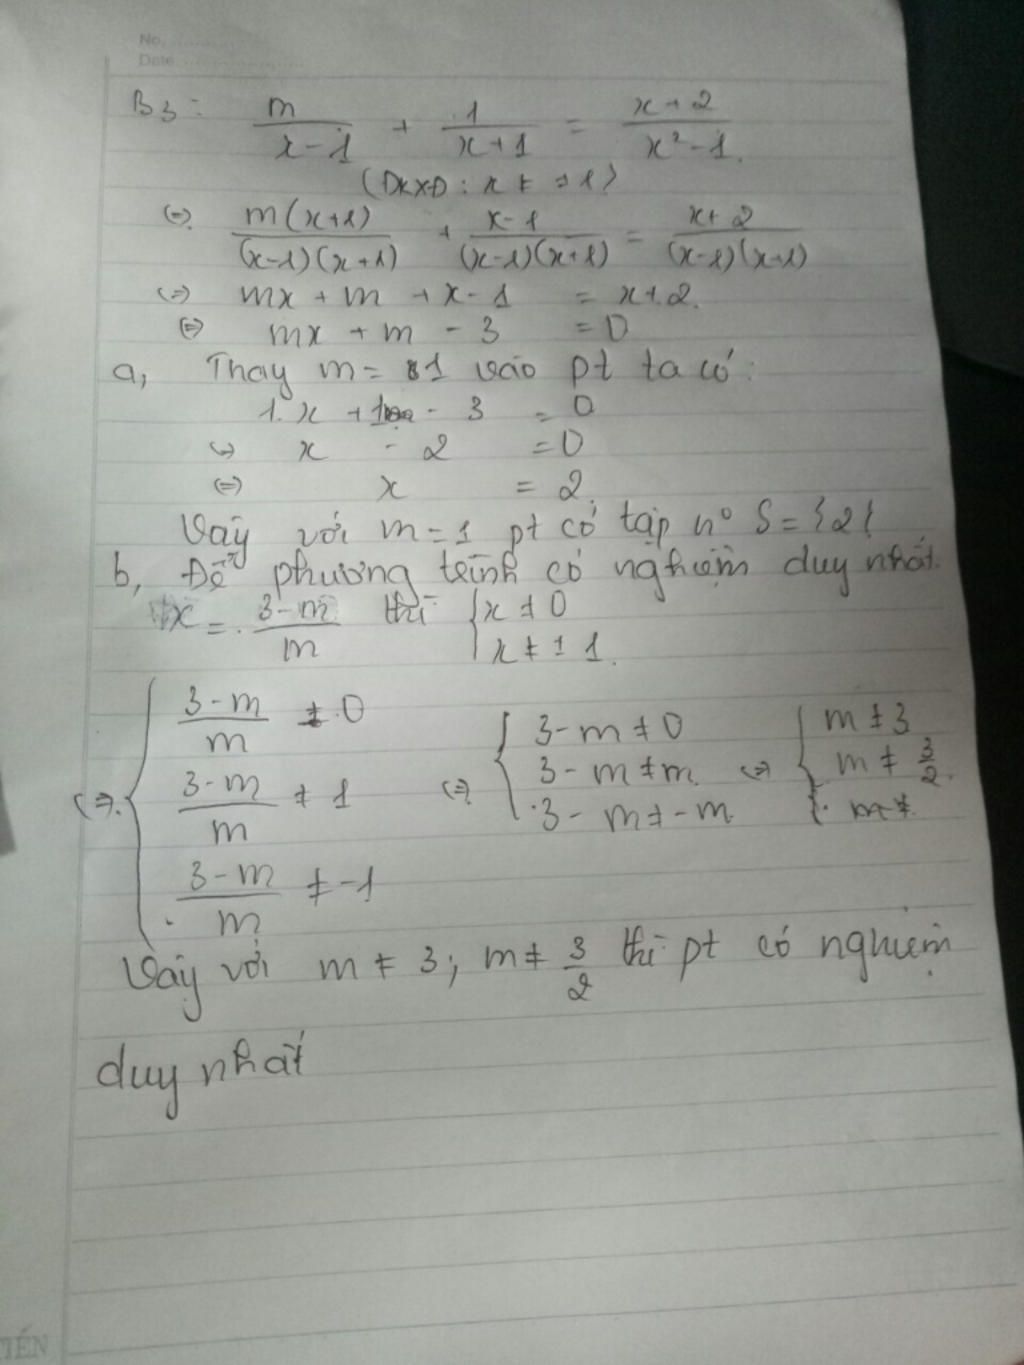 No.
Date
B3: m/(x-1) + 1/(x+1) = (x+2)/(x²-1).
(ĐKXĐ: x ≠ ±1)
(=) m(x+1)/((x-1)(x+1)) + (x-1)/((x-1)(x+1)) = (x+2)/((x-1)(x+1))
(=) mx + m + x - 1 = x + 2.
(=) mx + m - 3 = 0
a, Thay m = 1 vào pt ta có:
1.x + 1 - 3 = 0
(=) x - 2 = 0
(=) x = 2.
Vậy với m = 1 pt có tập n° S = {2}
b, Để phương trình có nghiệm duy nhất.
x = (3-m)/m thì { x ≠ 0
x ≠ ±1.
(=) { (3-m)/m ≠ 0
(3-m)/m ≠ 1
(3-m)/m ≠ -1
(=) { 3-m ≠ 0
3-m ≠ m
3-m ≠ -m
(=) { m ≠ 3
m ≠ 3/2.
m ≠
Vậy với m ≠ 3; m ≠ 3/2 thì pt có nghiệm
duy nhất
TIẾN